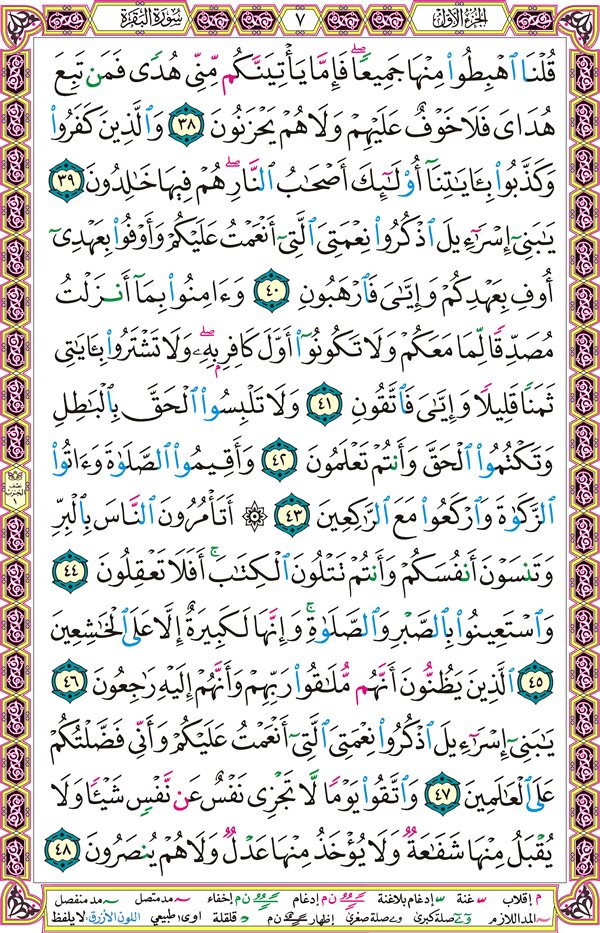 الجزء الأول
٧
سورة البقرة
قُلْنَا ٱهْبِطُوا۟ مِنْهَا جَمِيعًۭا ۖ فَإِمَّا يَأْتِيَنَّكُم مِّنِّى هُدًۭى فَمَن تَبِعَ
هُدَاىَ فَلَا خَوْفٌ عَلَيْهِمْ وَلَا هُمْ يَحْزَنُونَ ٣٨ وَٱلَّذِينَ كَفَرُوا۟
وَكَذَّبُوا۟ بِـَٔايَـٰتِنَآ أُو۟لَـٰٓئِكَ أَصْحَـٰبُ ٱلنَّارِ ۖ هُمْ فِيهَا خَـٰلِدُونَ ٣٩
يَـٰبَنِىٓ إِسْرَٰٓءِيلَ ٱذْكُرُوا۟ نِعْمَتِىَ ٱلَّتِىٓ أَنْعَمْتُ عَلَيْكُمْ وَأَوْفُوا۟ بِعَهْدِىٓ
أُوفِ بِعَهْدِكُمْ وَإِيَّـٰىَ فَٱرْهَبُونِ ٤٠ وَءَامِنُوا۟ بِمَآ أَنزَلْتُ
مُصَدِّقًۭا لِّمَا مَعَكُمْ وَلَا تَكُونُوٓا۟ أَوَّلَ كَافِرٍۭ بِهِۦ ۖ وَلَا تَشْتَرُوا۟ بِـَٔايَـٰتِى
ثَمَنًۭا قَلِيلًۭا وَإِيَّـٰىَ فَٱتَّقُونِ ٤١ وَلَا تَلْبِسُوا۟ ٱلْحَقَّ بِٱلْبَـٰطِلِ
وَتَكْتُمُوا۟ ٱلْحَقَّ وَأَنتُمْ تَعْلَمُونَ ٤٢ وَأَقِيمُوا۟ ٱلصَّلَوٰةَ وَءَاتُوا۟
ٱلزَّكَوٰةَ وَٱرْكَعُوا۟ مَعَ ٱلرَّٰكِعِينَ ٤٣ ۞ أَتَأْمُرُونَ ٱلنَّاسَ بِٱلْبِرِّ
وَتَنسَوْنَ أَنفُسَكُمْ وَأَنتُمْ تَتْلُونَ ٱلْكِتَـٰبَ ۚ أَفَلَا تَعْقِلُونَ ٤٤
وَٱسْتَعِينُوا۟ بِٱلصَّبْرِ وَٱلصَّلَوٰةِ ۚ وَإِنَّهَا لَكَبِيرَةٌ إِلَّا عَلَى ٱلْخَـٰشِعِينَ
٤٥ ٱلَّذِينَ يَظُنُّونَ أَنَّهُم مُّلَـٰقُوا۟ رَبِّهِمْ وَأَنَّهُمْ إِلَيْهِ رَٰجِعُونَ ٤٦
يَـٰبَنِىٓ إِسْرَٰٓءِيلَ ٱذْكُرُوا۟ نِعْمَتِىَ ٱلَّتِىٓ أَنْعَمْتُ عَلَيْكُمْ وَأَنِّى فَضَّلْتُكُمْ
عَلَى ٱلْعَـٰلَمِينَ ٤٧ وَٱتَّقُوا۟ يَوْمًۭا لَّا تَجْزِى نَفْسٌ عَن نَّفْسٍۢ شَيْـًۭٔا وَلَا
يُقْبَلُ مِنْهَا شَفَـٰعَةٌۭ وَلَا يُؤْخَذُ مِنْهَا عَدْلٌۭ وَلَا هُمْ يُنصَرُونَ ٤٨
نصف
الحزب
١
م إقلاب غنة إدغام بلاغنة ن م إدغام ن م إخفاء مد متصل مد منفصل
المد اللازم صلة كبرى صلة صغرى إظهار ن م قلقلة اوى: طبيعي اللون الأزرق: لا يلفظ